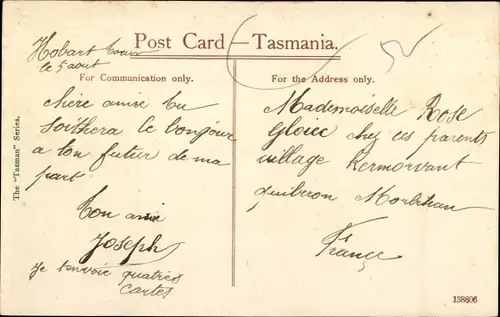 Post Card — Tasmania.
Hobart
le 5 aout
For Communication only.
For the Address only.
chère amie tu
le bonjour
a ton futur de ma
part
ton amie
Joseph
je tenvoie quatres
cartes
Mademoiselle Rose
Gloiec chez ces parents
village Kermorvant
quiberon Morbihan
France
The "Tasman" Series.
138806